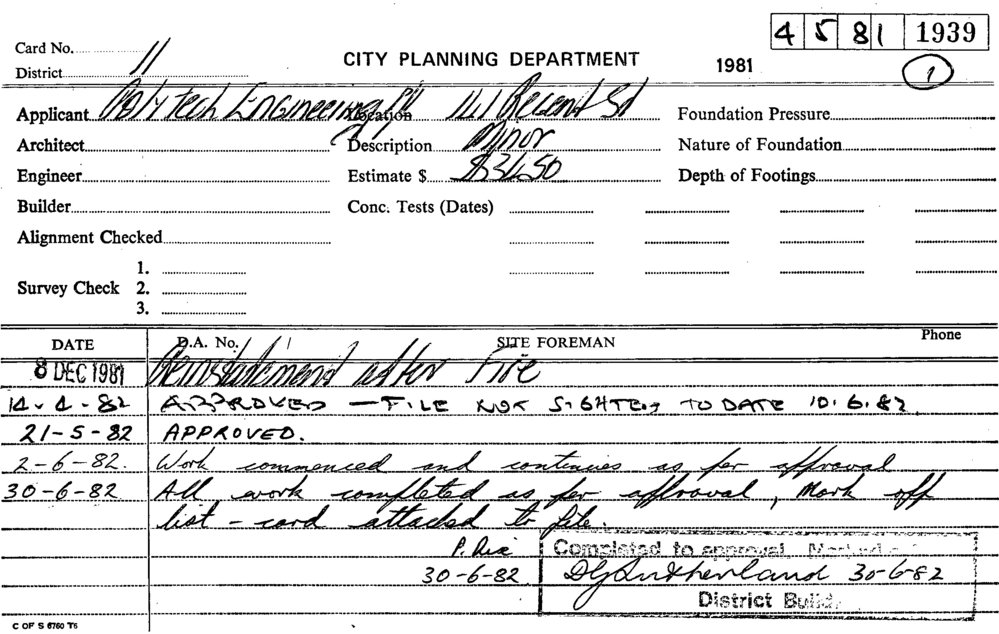 4 5 81 1939
Card No. 11
CITY PLANNING DEPARTMENT
1981
1
District
Applicant Polytech Engineering P/L Location 141 Regent St Foundation Pressure
Architect Description Minor Nature of Foundation
Engineer Estimate $ $3450 Depth of Footings
Builder Conc. Tests (Dates)
Alignment Checked
1.
Survey Check 2.
3.
DATE D.A. No. SITE FOREMAN Phone
8 DEC 1981 Reinstatement after Fire
14-4-82 APPROVED — FILE NOT SIGHTED TO DATE 10.6.82
21-5-82 APPROVED.
2-6-82. Work commenced and continues as per approval
30-6-82 All work completed as per approval, Mark off
list - card attached to file.
P. Rix
30-6-82
Completed to approval. Marked
30-6-82
District Build.
C OF S 6760 T6